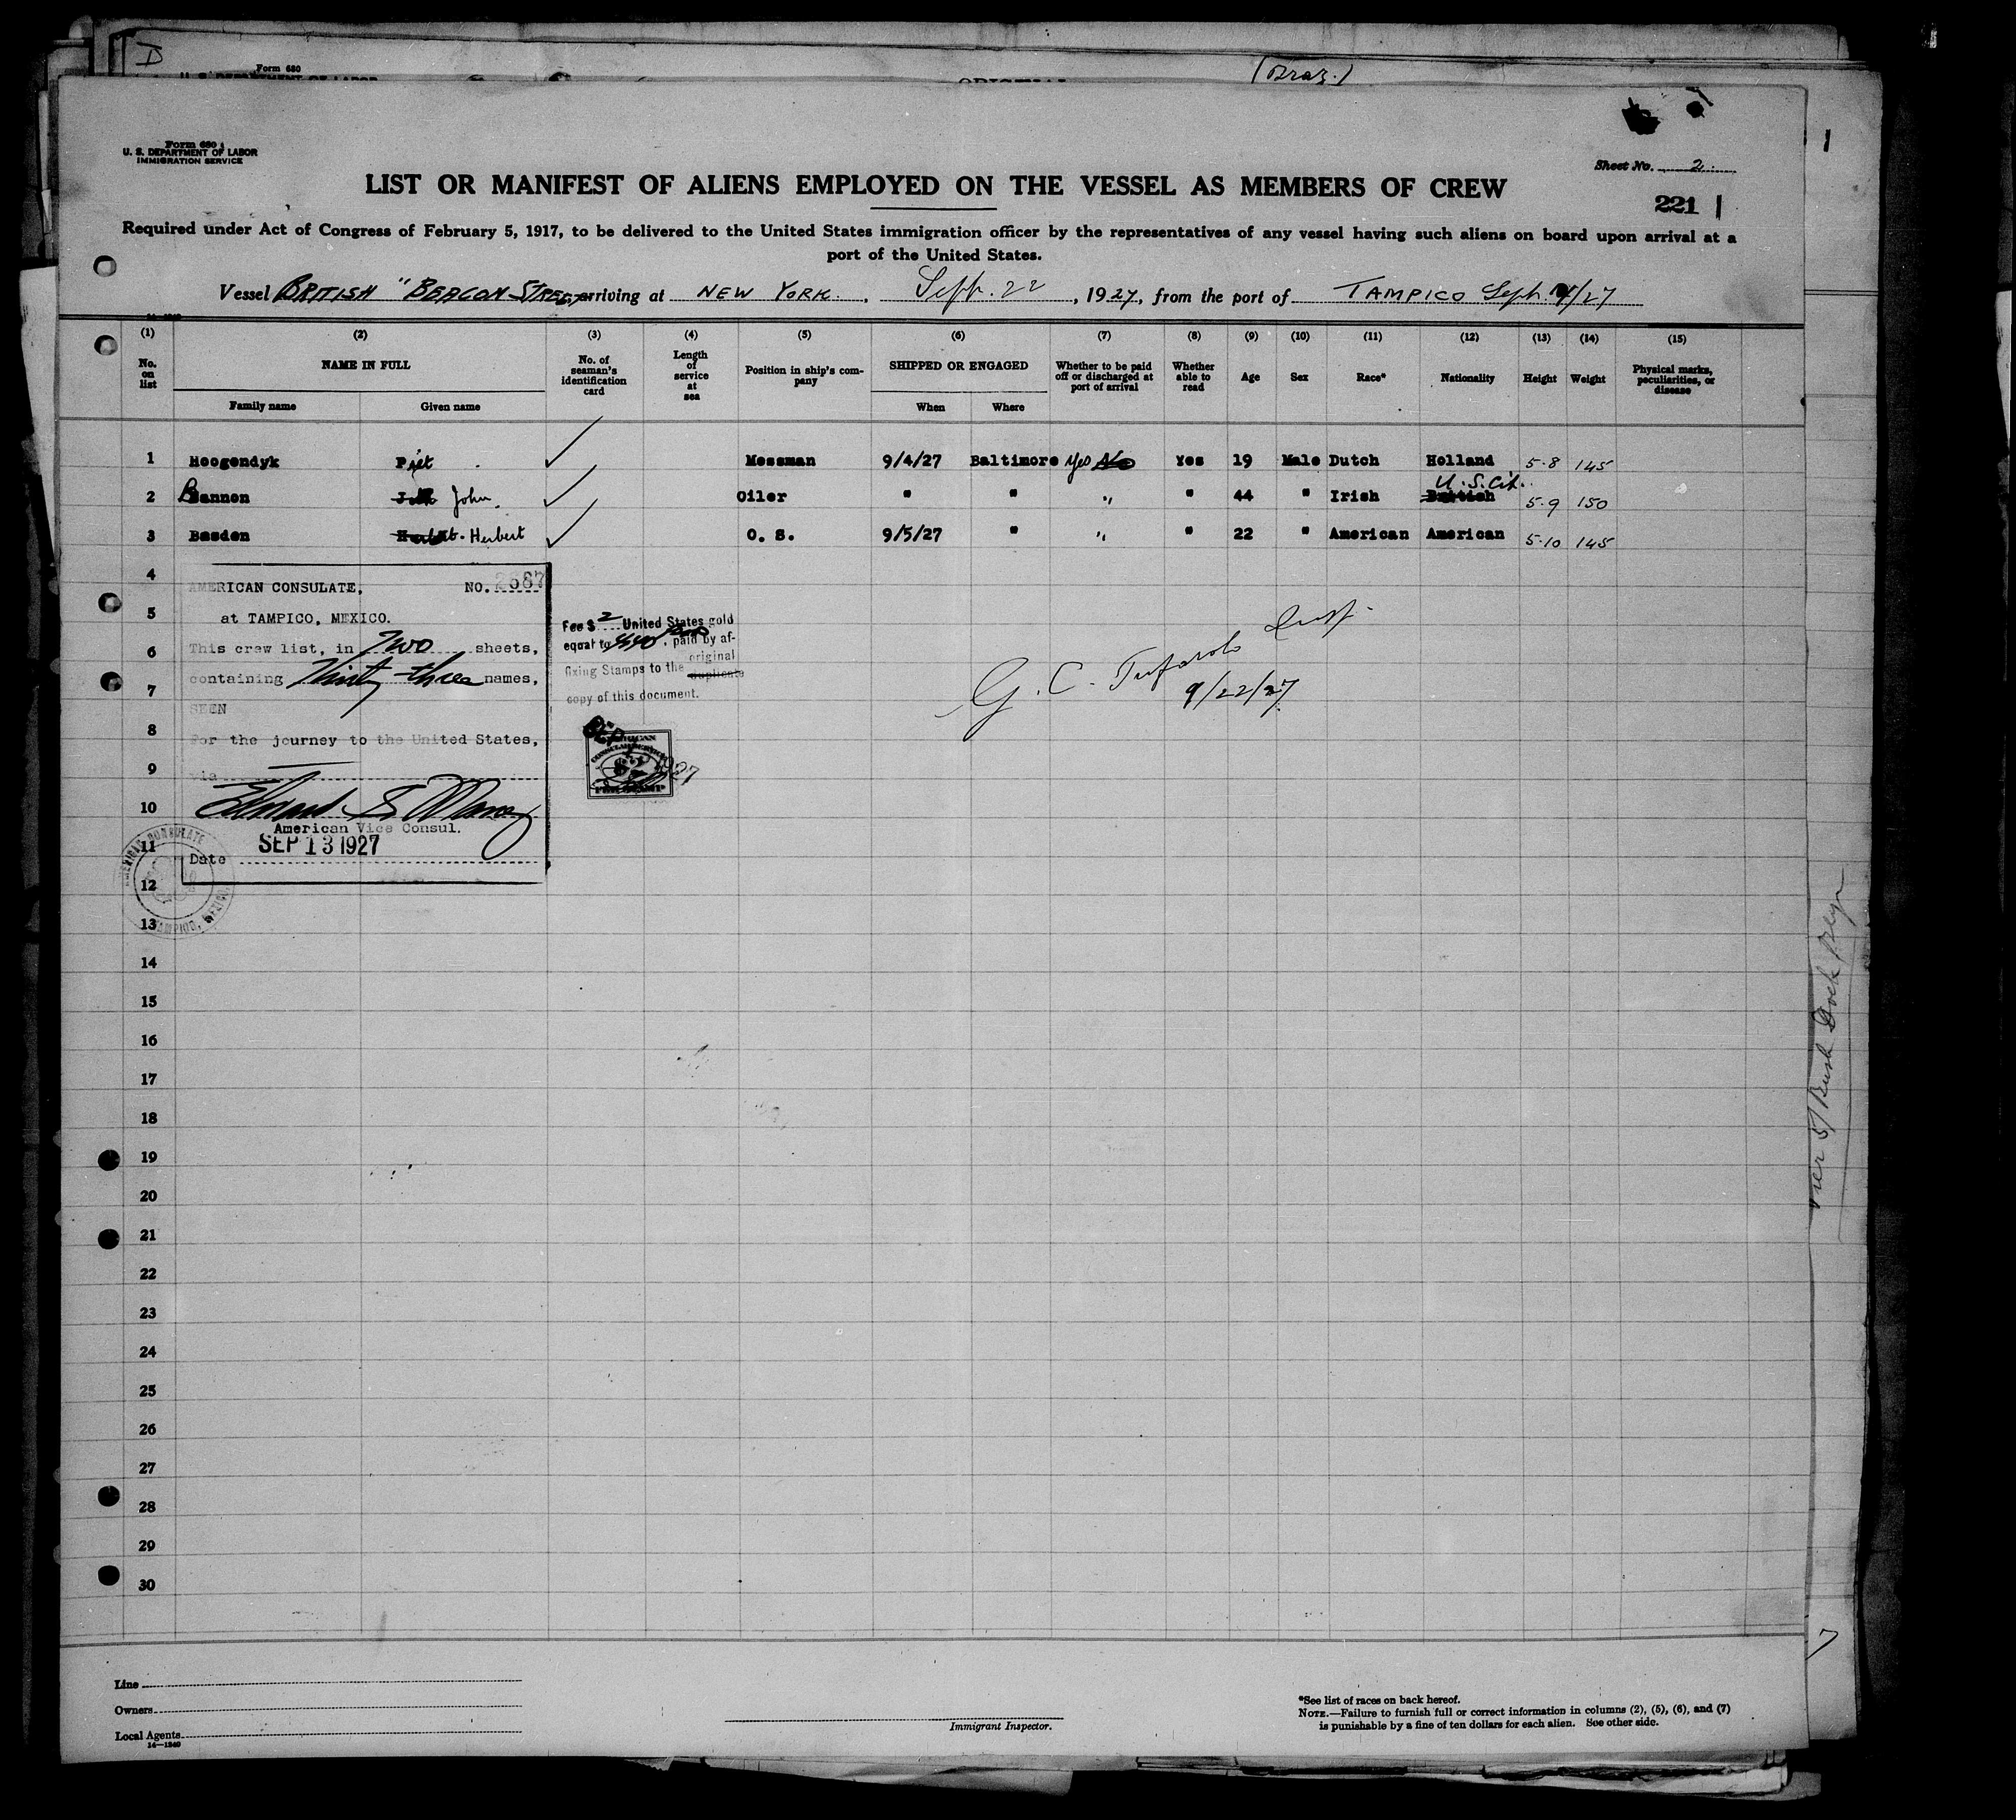 D
Form 680
(Braz.)
Form 680
U. S. DEPARTMENT OF LABOR
IMMIGRATION SERVICE
Sheet No. 2.
LIST OR MANIFEST OF ALIENS EMPLOYED ON THE VESSEL AS MEMBERS OF CREW
221
Required under Act of Congress of February 5, 1917, to be delivered to the United States immigration officer by the representatives of any vessel having such aliens on board upon arrival at a
port of the United States.
Vessel BRITISH "BEACON STREET arriving at NEW YORK. , Sept. 22 , 1927, from the port of TAMPICO Sept. /27
(1) (2) (3) (4) (5) (6) (7) (8) (9) (10) (11) (12) (13) (14) (15)
No. on list NAME IN FULL Family name Given name No. of seaman's identification card Length of service at sea Position in ship's company SHIPPED OR ENGAGED When Where Whether to be paid off or discharged at port of arrival Whether able to read Age Sex Race* Nationality Height Weight Physical marks, peculiarities, or disease
1 Hoogendyk Piet Messman 9/4/27 Baltimore Yes No Yes 19 Male Dutch Holland 5-8 145
2 Bannon John. Oiler " " " " 44 " Irish British U.S. Cit. 5-9 150
3 Basden Herbert O. S. 9/5/27 " " " 22 " American American 5-10 145
4
5
6
7
8
9
10
11
12
13
AMERICAN CONSULATE, NO. 2587
at TAMPICO, MEXICO.
This crew list, in Two sheets,
containing Thirty three names,
SEEN
For the journey to the United States,
via
American Vice Consul.
Date SEP 13 1927
AMERICAN CONSULATE TAMPICO, MEXICO.
Fee $ 2 United States gold
equal to , paid by af-
fixing Stamps to the original
duplicate
copy of this document.
AMERICAN
CONSULAR SERVICE
$2
FEE STAMP
SEP 1927
G. C. Tufarolo Insp.
9/22/27
14
15
16
17
18
19
20
21
22
23
24
25
26
27
28
29
30
Pier 5/ Bush Dock Bklyn
7
Line
Owners
Local Agents
14—1240
Immigrant Inspector.
*See list of races on back hereof.
NOTE.—Failure to furnish full or correct information in columns (2), (5), (6), and (7)
is punishable by a fine of ten dollars for each alien. See other side.